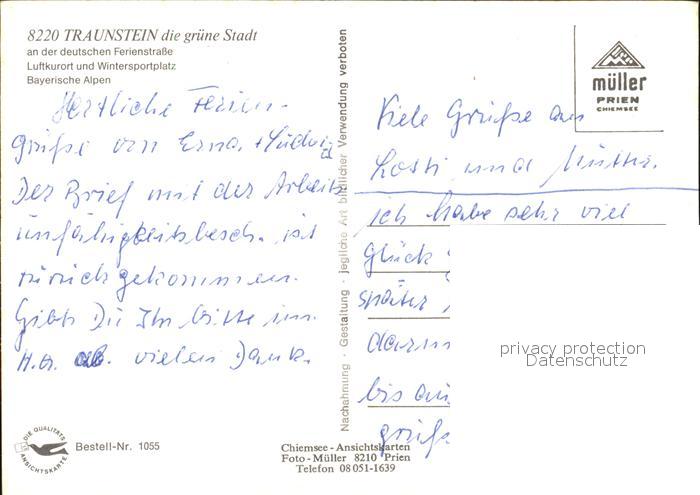 8220 TRAUNSTEIN die grüne Stadt
an der deutschen Ferienstraße
Luftkurort und Wintersportplatz
Bayerische Alpen
Herzliche Ferien-
grüße von Erna + Ludwig
Der Brief mit der Arbeits
unfähigkeitsbesch. ist
zurückgekommen.
Gibst Du Ihn bitte im
ab. vielen Dank.
DIE QUALITÄTS
ANSICHTSKARTE
Bestell-Nr. 1055
Nachahmung · Gestaltung · jegliche Art bildlicher Verwendung verboten
müller
PRIEN
CHIEMSEE
Viele Grüße an
und Mutter.
ich habe sehr viel
Glück
später
dann
bis
grüß
privacy protection
Datenschutz
Chiemsee-Ansichtskarten
Foto-Müller 8210 Prien
Telefon 08051-1639